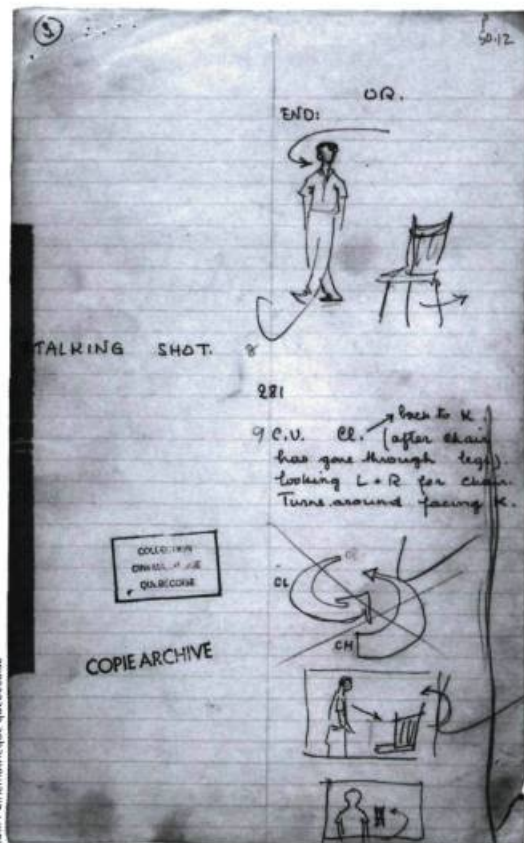 9
P
50.12
OR.
END:
STALKING SHOT. 8
281
9 C.U. Cl. → back to K.
(after chair
has gone through legs).
looking L + R for chair.
Turns around facing K.
COLLECTION
QUEBECOISE
CL
CH
COPIE ARCHIVE